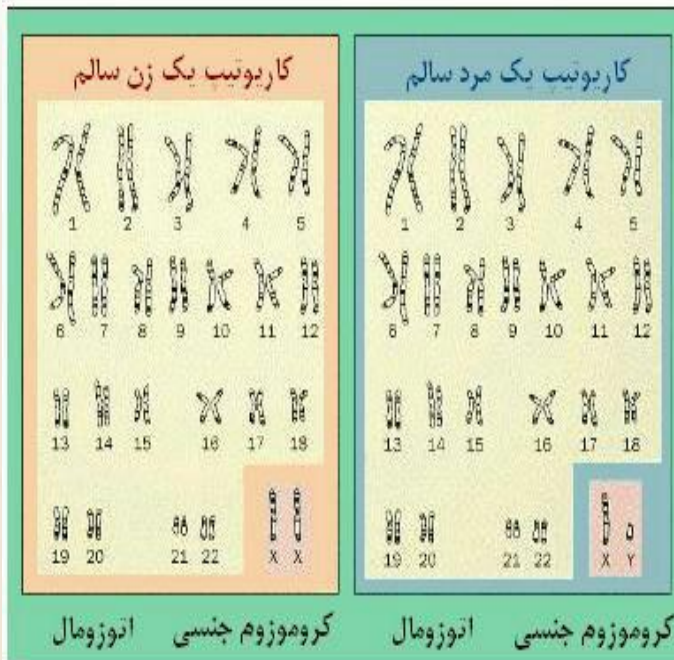 کاریوتیپ یک مرد سالم
1 2 3 4 5
6 7 8 9 10 11 12
13 14 15 16 17 18
19 20 21 22 X Y
کروموزوم جنسی اتوزومال
کاریوتیپ یک زن سالم
1 2 3 4 5
6 7 8 9 10 11 12
13 14 15 16 17 18
19 20 21 22 X X
کروموزوم جنسی اتوزومال